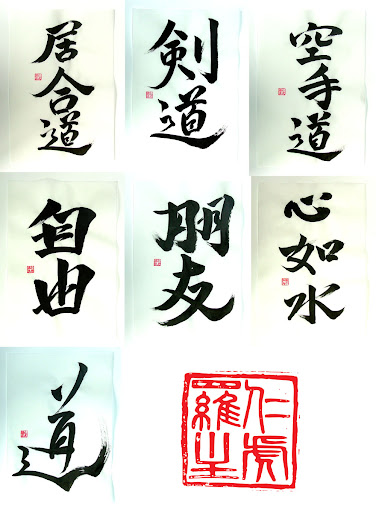 居合道
剣道
空手道
自由
朋友
心如水
道
仁虎
羅